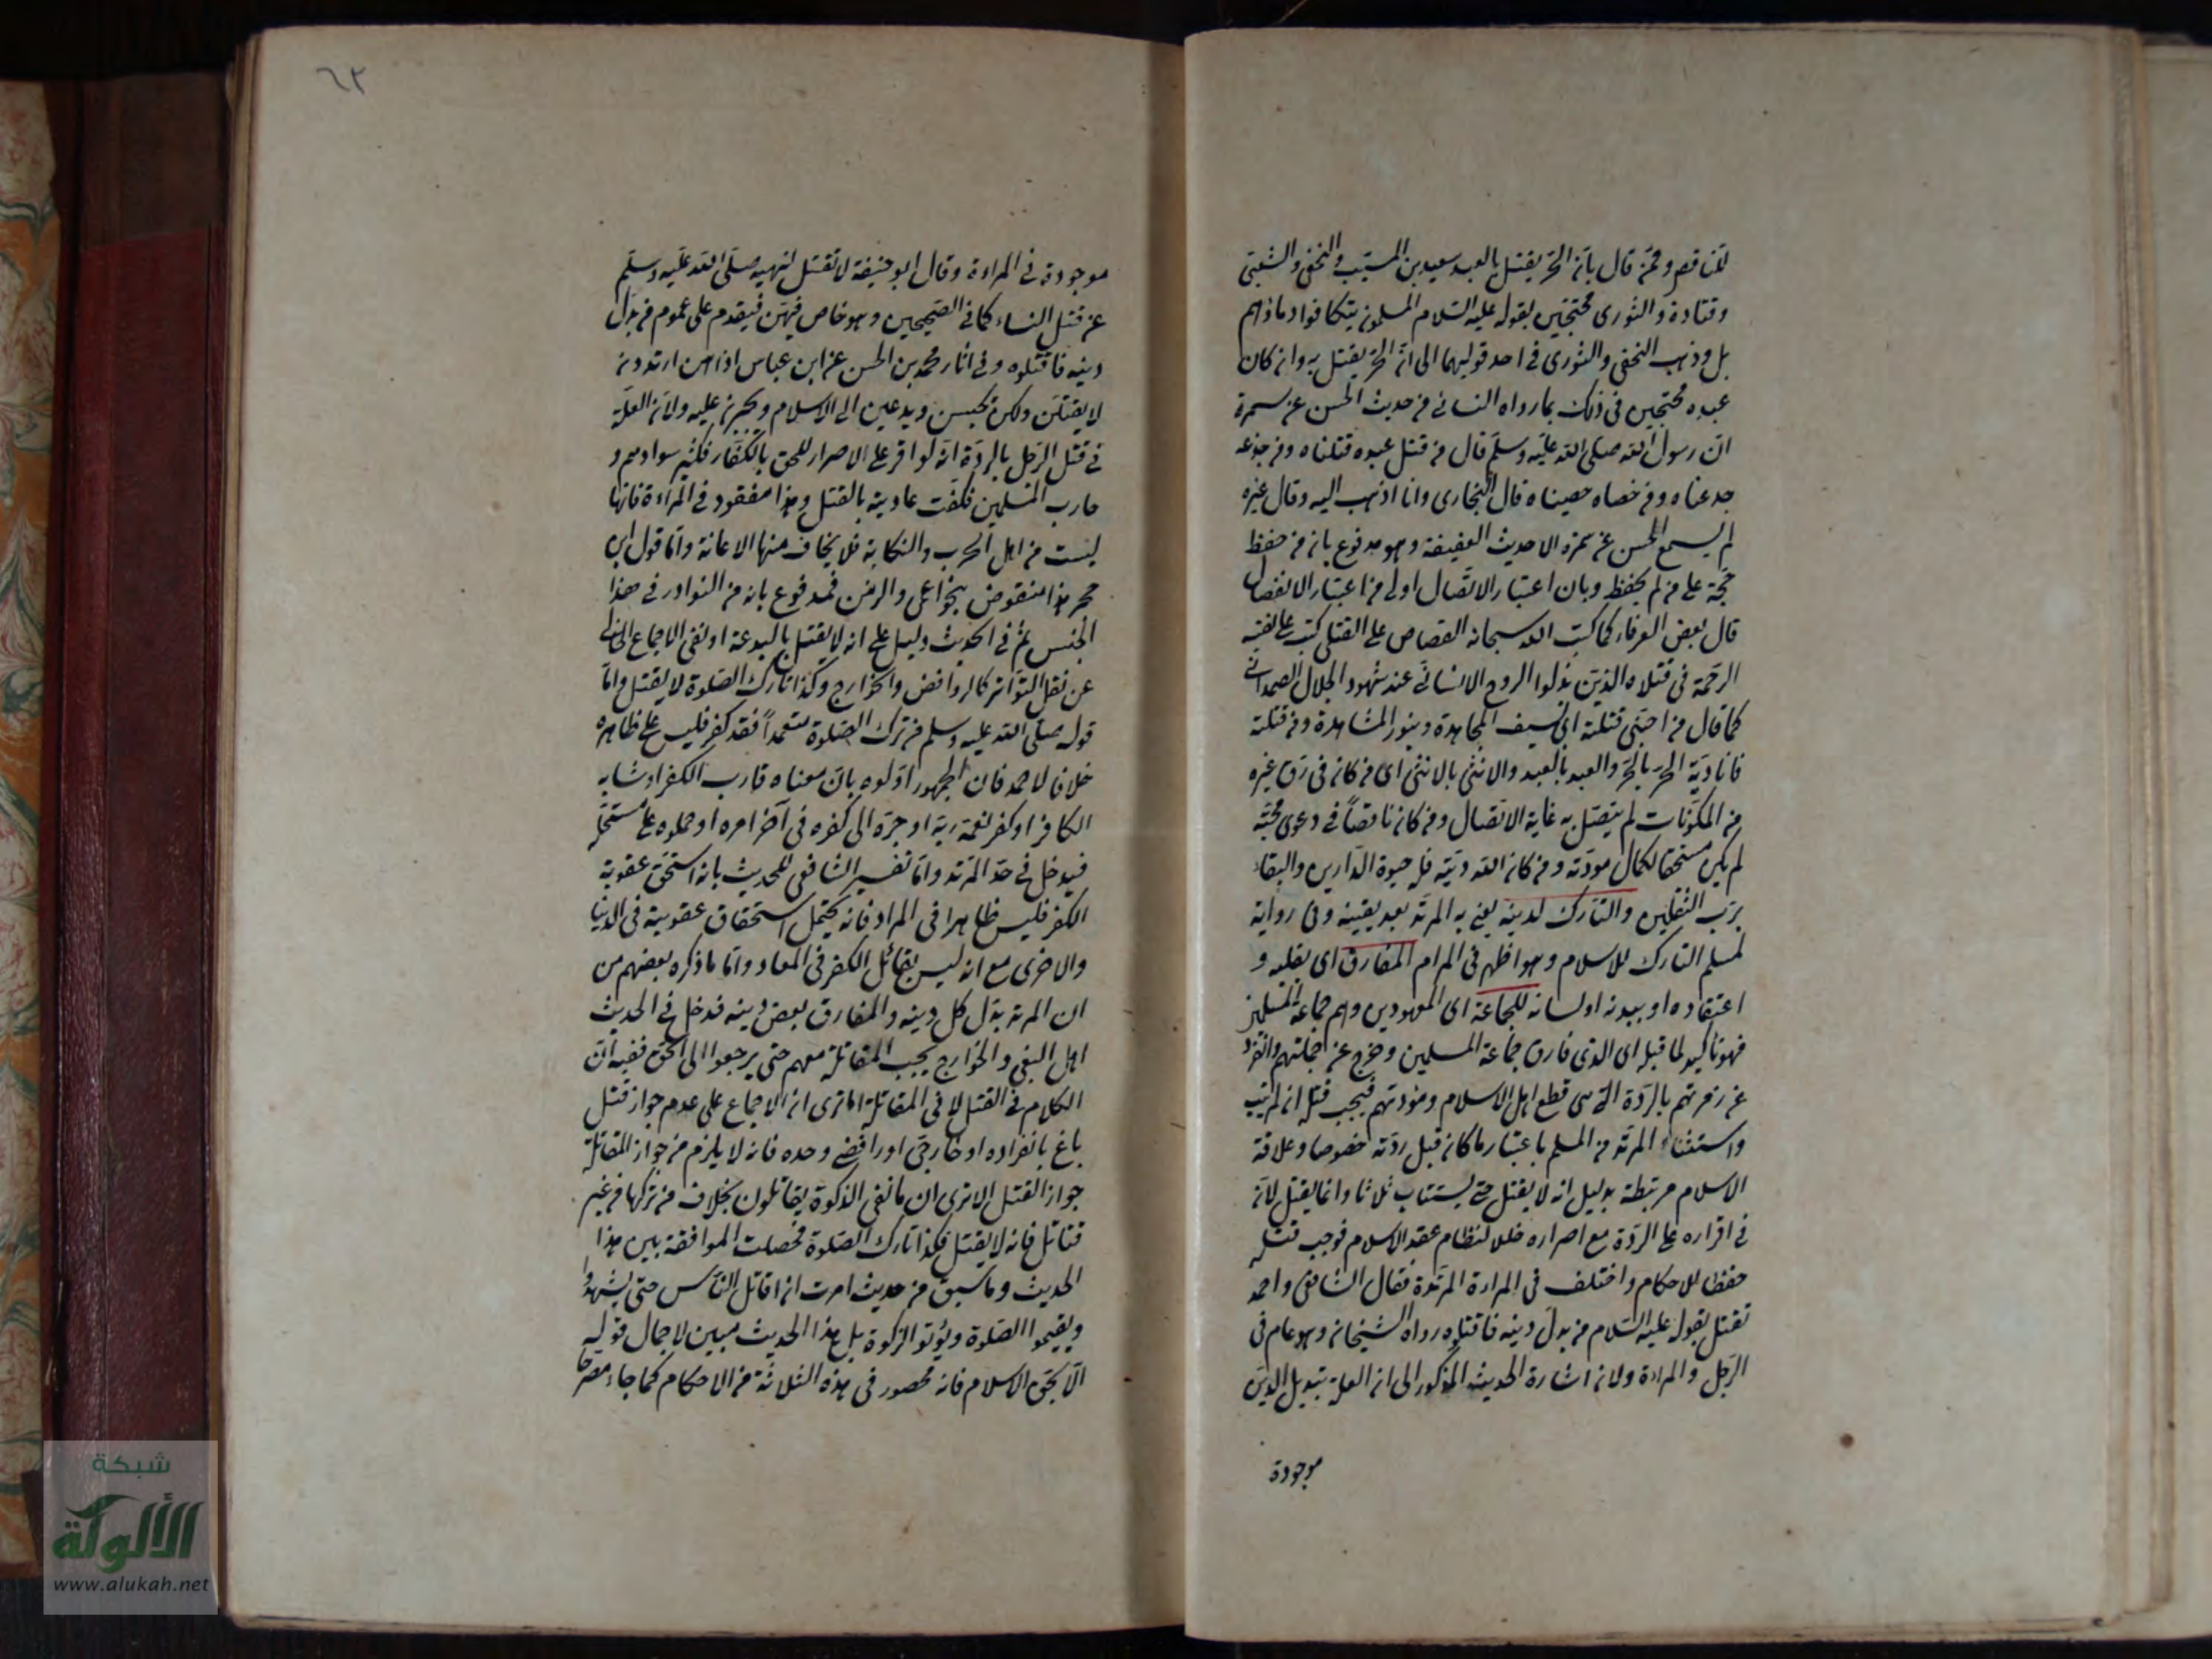 لتناقص وممن قال بان الحر يقتل بالعبد سعيد بن المسيب والنخعى والشعبى
وقتادة والثورى محتجين بقوله عليه السلام المسلمون يتكافوا دماؤهم
بل وذهب النخعى والثورى فى احد قوليهما الى ان الحر يقتل به وان كان
عبده محتجين فى ذلك بما رواه النسائى من حديث الحسن عن سمرة
ان رسول الله صلى الله عليه وسلم قال من قتل عبده قتلناه ومن جدعه
جدعناه ومن خصاه خصيناه قال البخارى وانا اذهب اليه وقال غيره
لم يسمع الحسن عن سمرة الا حديث العقيقة وهو مدفوع بان من حفظ
حجة على من لم يحفظ وبان اعتبار الاتصال اولى من اعتبار الانفصال
قال بعض العرفاء كما كتب الله سبحانه القصاص على القتلى كتب على نفسه
الرحمة فى قتلاه الذين بذلوا الروح الانسانى عند شهود الجلال الصمدانى
كما قال من احبنى قتلته اى بسيف المجاهدة وبنور المشاهدة ومن قتلته
فانا ديته الحر بالحر والعبد بالعبد والانثى بالانثى اى من كان فى رق غيره
من المكونات لم يتصل به غاية الاتصال ومن كان ناقصا فى دعوى محبته
لم يكن مستحقا لكمال مودته ومن كان الله ديته فله حيوة الدارين والبقاء
برب الثقلين والتارك لدينه يعنى به المرتد بعد يقينه وفى رواية
لمسلم التارك للاسلام وهو اظهر فى المرام المفارق اى بقلبه و
اعتقاده او ببدنه او لسانه للجماعة اى المعهودين وهم جماعة المسلمين
فهو تاكيد لما قبله اى الذى فارق جماعة المسلمين وخرج عن جملتهم وانفرد
عن زمرتهم بالردة التى هى قطع اهل الاسلام ومودتهم فيجب قتله ان لم يتب
واستثناء المرتد من المسلم باعتبار ما كان قبل ردته خصوصا وعلاقة
الاسلام مرتبطة بدليل انه لا يقتل حتى يستتاب ثلاثا وانما يقتل لان
فى اقراره على الردة مع اصراره خللا لنظام عقد الاسلام فوجب قتله
حفظا للاحكام واختلف فى المراءة المرتدة فقال الشافعى واحمد
تقتل بقوله عليه السلام من بدل دينه فاقتلوه رواه الشيخان وهو عام فى
الرجل والمراءة ولان اشارة الحديث المذكور الى ان العلة تبديل الدين
موجودة
٦٢
موجودة فى المراءة وقال ابو حنيفة لا تقتل لنهيه صلى الله عليه وسلم
عن قتل النساء كما فى الصحيحين وهو خاص فيهن فيقدم على عموم من بدل
دينه فاقتلوه وفى اثار محمد بن الحسن عن ابن عباس اذا هن ارتددن
لا يقتلن ولكن يحبسن ويدعين الى الاسلام ويجبرن عليه ولان العلة
فى قتل الرجل بالردة انه لو اقر على الاصرار للحق بالكفار فكثر سوادهم و
حارب المسلمين فكفت عاديته بالقتل وهذا مفقود فى المراءة فانها
ليست من اهل الحرب والنكاية فلا يخاف منها الاعانة واما قول ابن
حجر هذا منقوض بنحو اعمى والزمن فمدفوع بانه من النوادر فى هذا
الجنس ثم فى الحديث دليل على انه لا يقتل بالبدعة او نفى الاجماع الخالى
عن نقل التواتر كالروافض والخوارج وكذا تارك الصلوة لا يقتل واما
قوله صلى الله عليه وسلم من ترك الصلوة متعمدا فقد كفر فليس على ظاهره
خلافا لاحمد فان الجمهور اولوه بان معناه قارب الكفر او شابه
الكافر او كفر نعمة ربه او جره الى كفره فى آخر امره او حملوه على مستحله
فيدخل فى حد المرتد واما تفسير الشافعى للحديث بانه استحق عقوبة
الكفر فليس ظاهرا فى المراد فانه يحتمل استحقاق عقوبته فى الدنيا
والاخرى مع انه ليس بقائل الكفر فى المعاد واما ما ذكره بعضهم من
ان المرتد بدل كل دينه والمفارق بعض دينه فدخل فى الحديث
اهل البغى والخوارج يجب المقاتلة معهم حتى يرجعوا الى الحق ففيه ان
الكلام فى القتل لا فى المقاتلة الا ترى ان الاجماع على عدم جواز قتل
باغ بانفراده او خارجى او رافضى وحده فانه لا يلزم من جواز المقاتلة
جواز القتل الا ترى ان مانعى الزكوة يقاتلون بخلاف من تركها من غير
قتاتل فانه لا يقتل فكذا تارك الصلوة فحصلت الموافقة بين هذا
الحديث وما سبق من حديث امرت ان اقاتل الناس حتى يشهدوا
ويقيموا الصلوة ويؤتوا الزكوة بل هذا الحديث مبين لاجمال قوله
الا بحق الاسلام فانه محصور فى هذه الثلاثة من الاحكام كما جاء مصرحا
شبكة
الألوكة
www.alukah.net